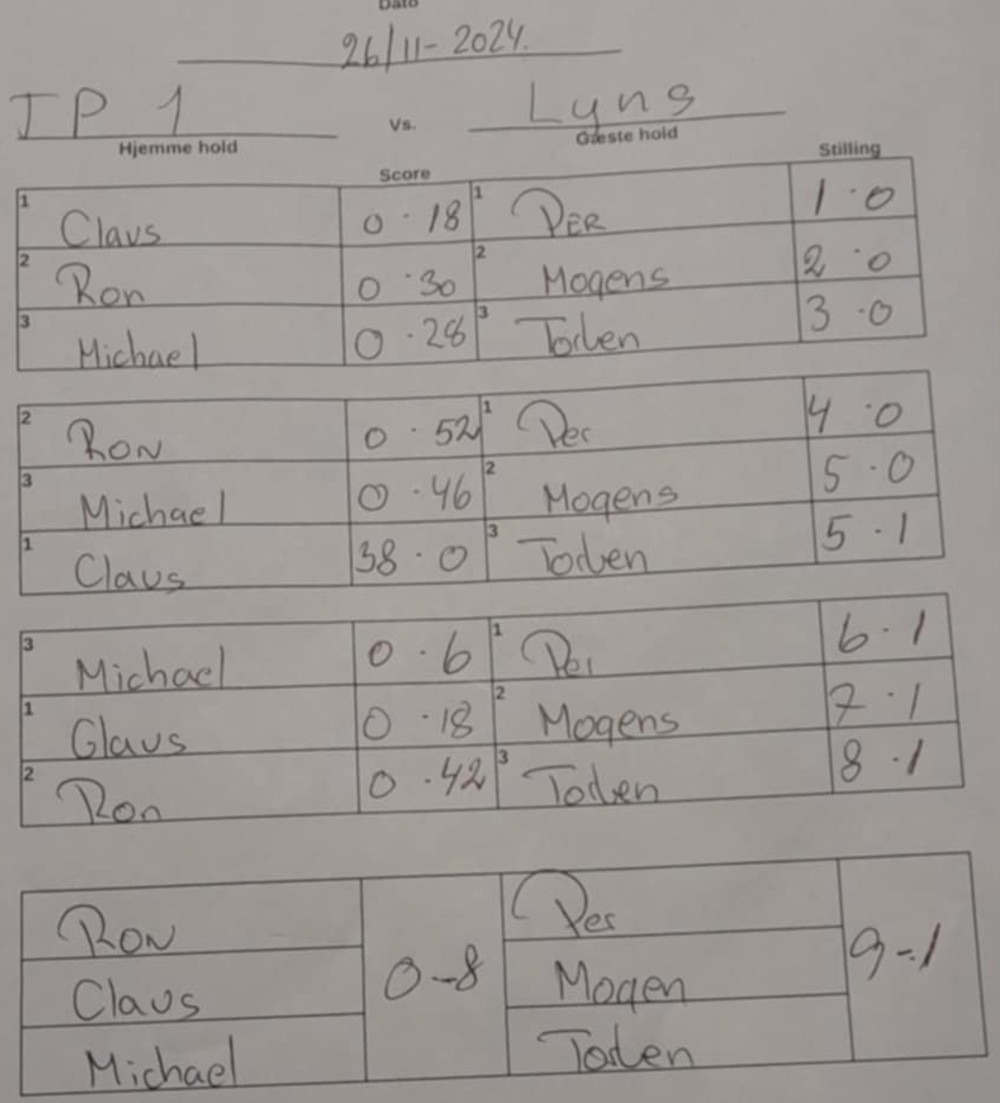 Dato
26/11-2024.
JP 1 Vs. Lyns
Hjemme hold Gæste hold
Score Stilling
1 Claus 0 · 18 1 PER 1 · 0
2 Ron 0 · 30 2 Mogens 2 · 0
3 Michael 0 · 28 3 Torben 3 · 0
2 RON 0 · 52 1 Per 4 · 0
3 Michael 0 · 46 2 Mogens 5 · 0
1 Claus 38 · 0 3 Torben 5 · 1
3 Michael 0 · 6 1 Per 6 · 1
1 Claus 0 · 18 2 Mogens 7 · 1
2 Ron 0 · 42 3 Torben 8 · 1
RON Per
Claus 0-8 Mogen 9-1
Michael Torben